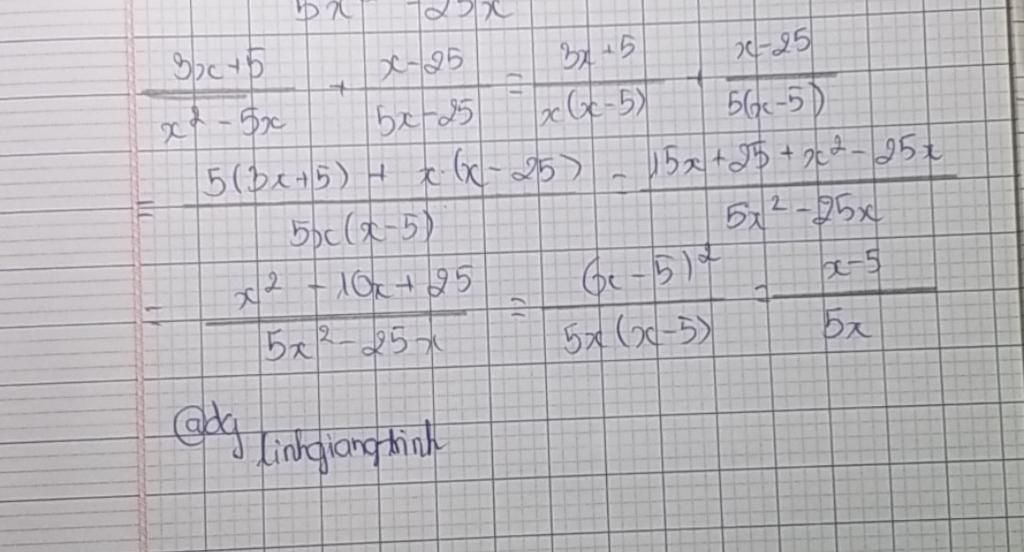 5x -25x
(3x+5)/(x² - 5x) + (x-25)/(5x-25) = (3x+5)/(x(x-5)) + (x-25)/(5(x-5))
= (5(3x+5) + x.(x-25))/(5x(x-5)) = (15x+25+x²-25x)/(5x²-25x)
= (x² - 10x + 25)/(5x²-25x) = (x-5)²/(5x(x-5)) = (x-5)/(5x)
@dg linhgiangtrinh